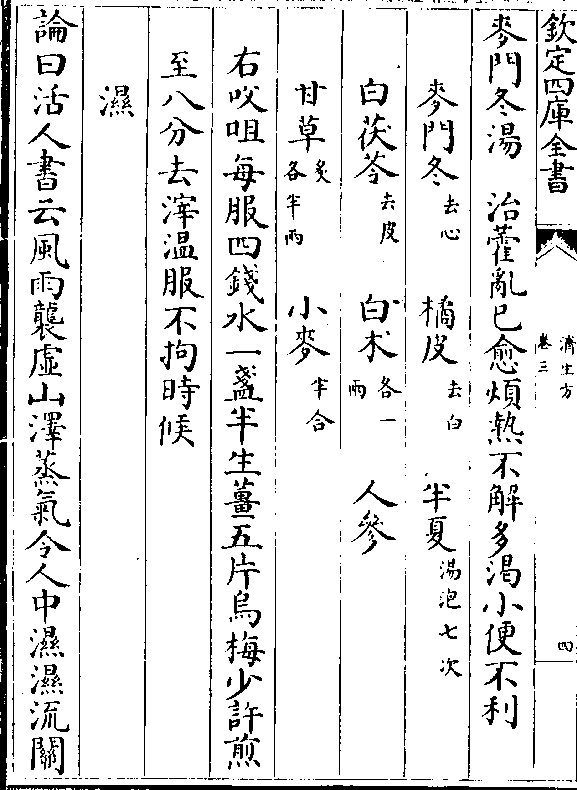 欽定四庫全書
濟生方
卷三
四
麥門冬湯　治藿亂已愈煩熱不解多渴小便不利
麥門冬去心　橘皮去白　半夏湯泡七次
白茯苓去皮　白朮各一兩　人參
甘草炙各半兩　小麥半合
右㕮咀每服四錢水一盞半生薑五片烏梅少許煎
至八分去滓温服不拘時候
濕
論曰活人書云風雨襲虛山澤蒸氣令人中濕濕流關